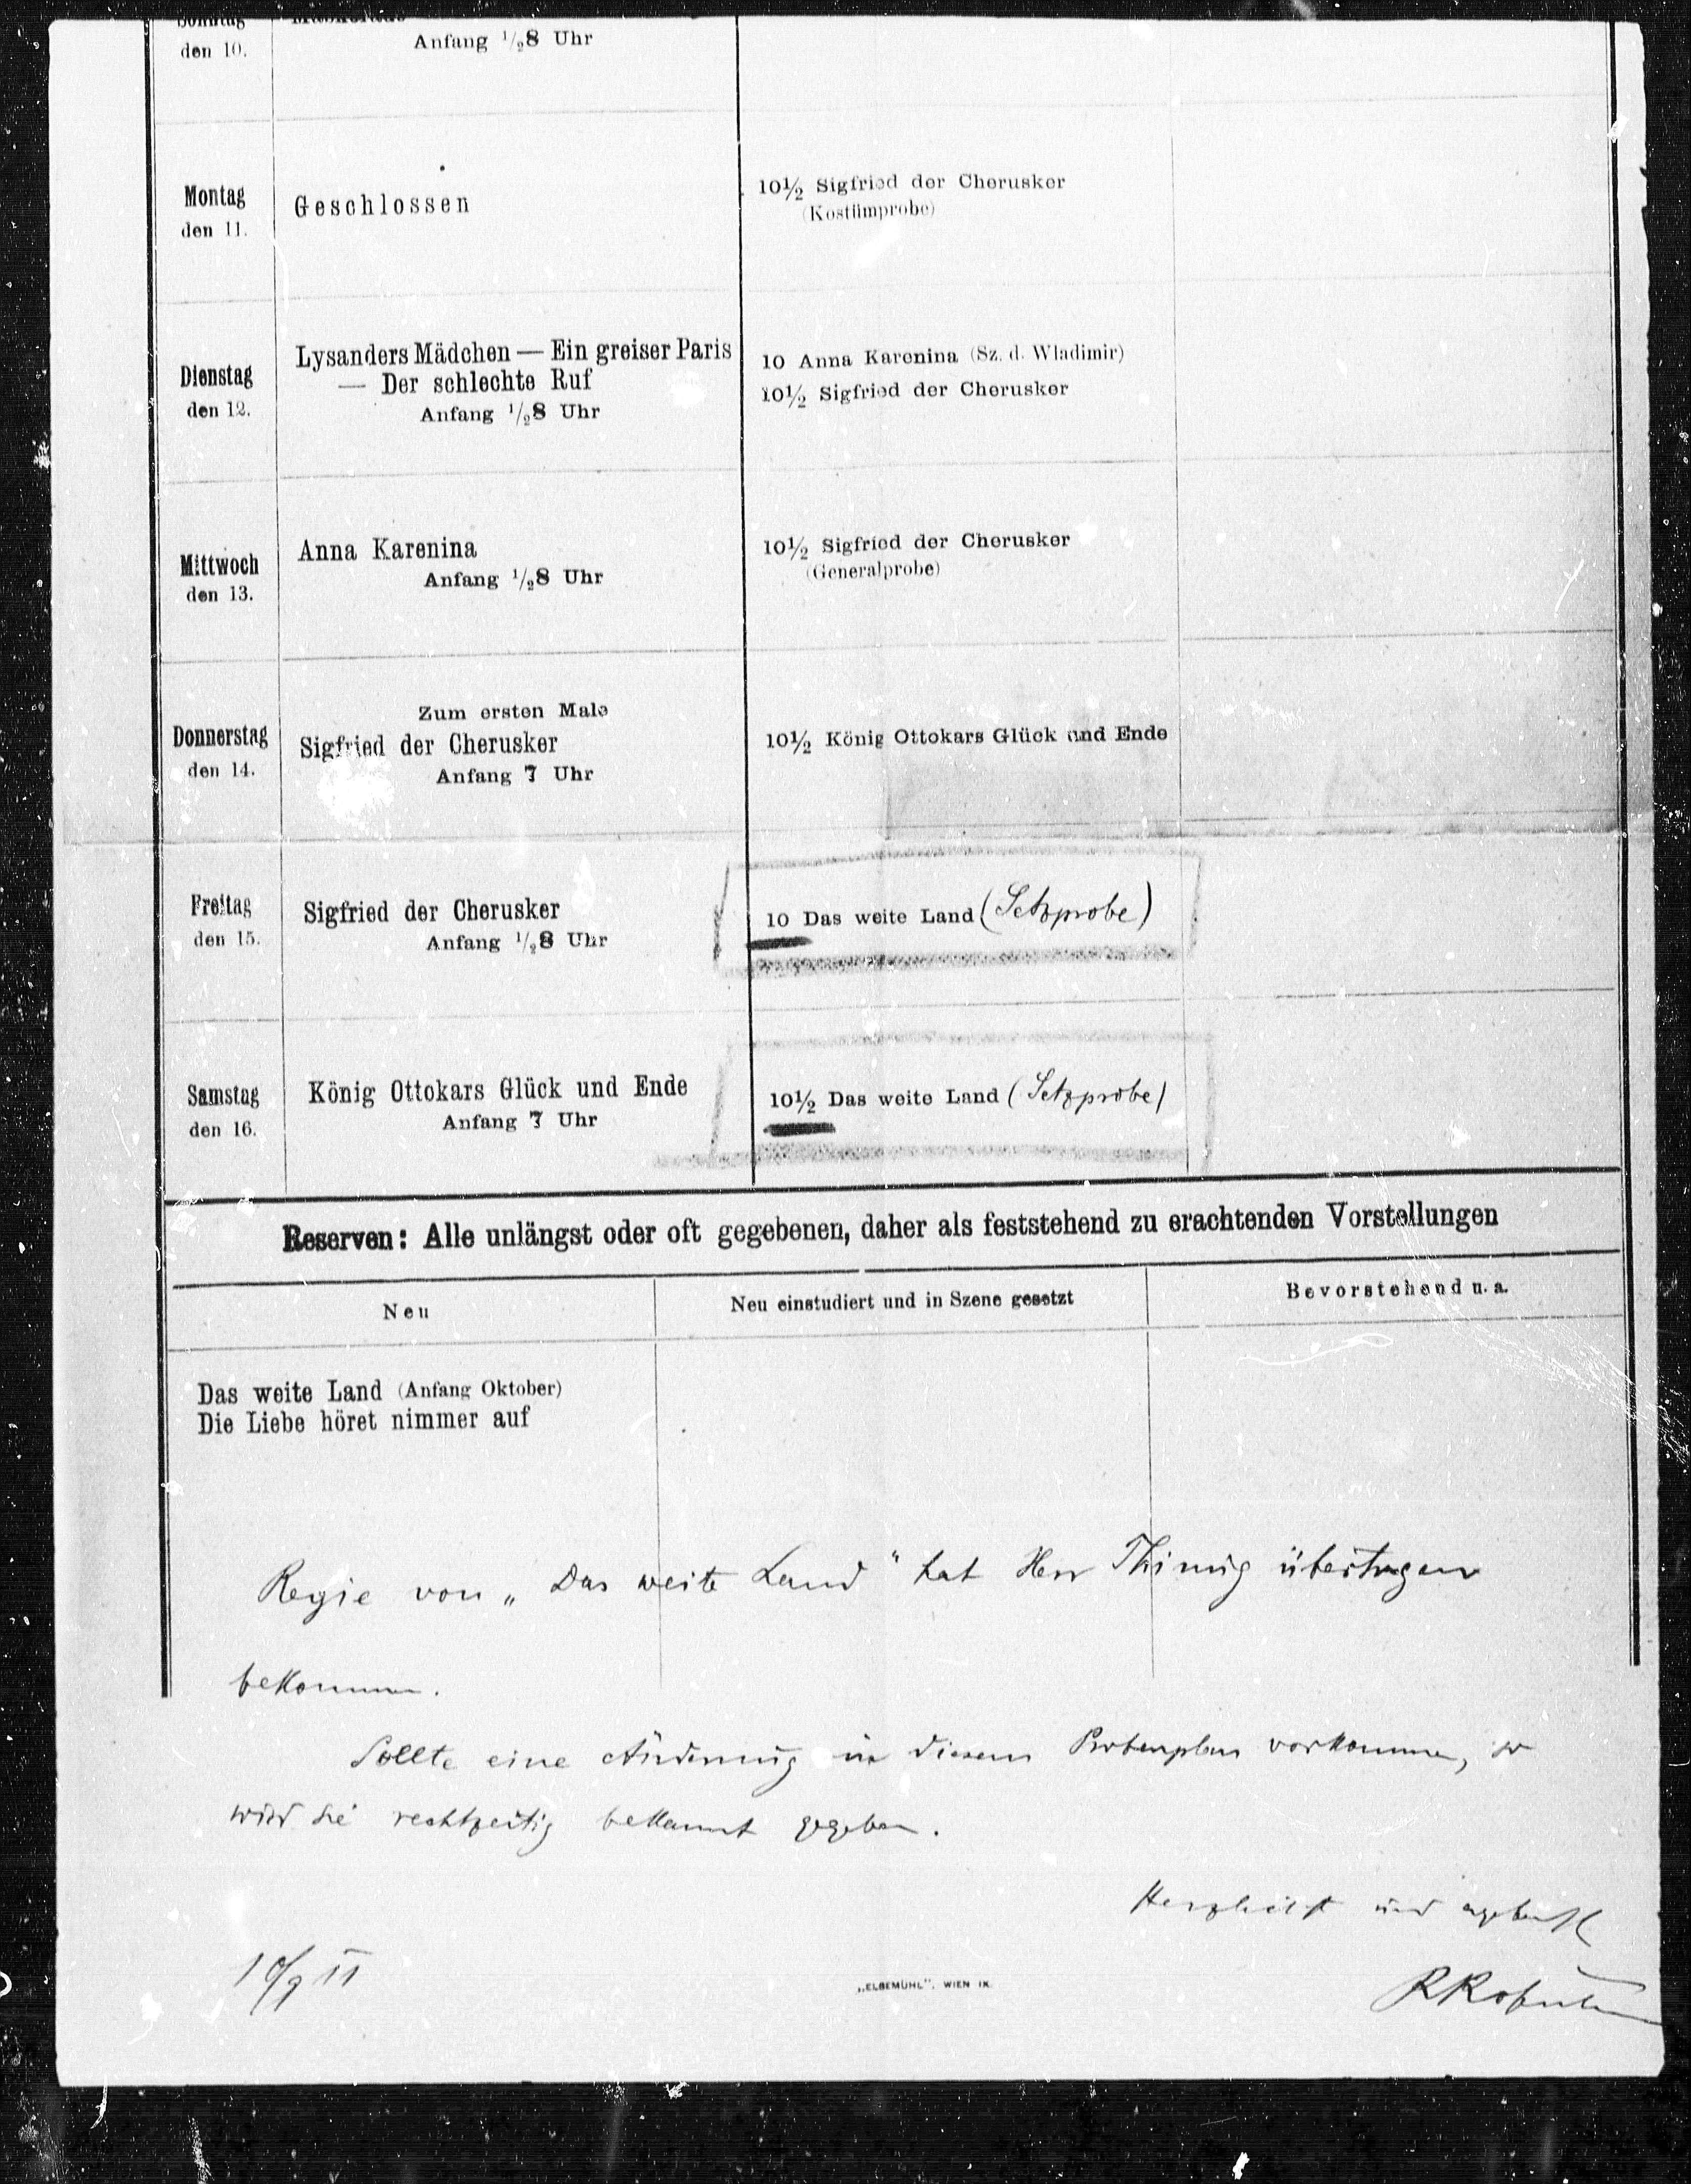 Sonntag
den 10.
Anfang ½8 Uhr
Montag
den 11.
Geschlossen
10½ Sigfried der Cherusker
(Kostümprobe)
Dienstag
den 12.
Lysanders Mädchen — Ein greiser Paris
— Der schlechte Ruf
Anfang ½8 Uhr
10 Anna Karenina (Sz. d. Wladimir)
10½ Sigfried der Cherusker
Mittwoch
den 13.
Anna Karenina
Anfang ½8 Uhr
10½ Sigfried der Cherusker
(Generalprobe)
Donnerstag
den 14.
Zum ersten Male
Sigfried der Cherusker
Anfang 7 Uhr
10½ König Ottokars Glück und Ende
Freitag
den 15.
Sigfried der Cherusker
Anfang ½8 Uhr
10 Das weite Land (Setzprobe)
Samstag
den 16.
König Ottokars Glück und Ende
Anfang 7 Uhr
10½ Das weite Land (Setzprobe)
Reserven: Alle unlängst oder oft gegebenen, daher als feststehend zu erachtenden Vorstellungen
Neu
Neu einstudiert und in Szene gesetzt
Bevorstehend u. a.
Das weite Land (Anfang Oktober)
Die Liebe höret nimmer auf
Regie von „Das weite Land" hat Herr Thimig übertragen
bekommen.
Sollte eine Änderung in diesem Probenplan vorkommen, so
wird sie rechtzeitig bekannt gegeben.
Herzlichst und ergebenst
10/9 11
„ELBEMÜHL", WIEN IX.